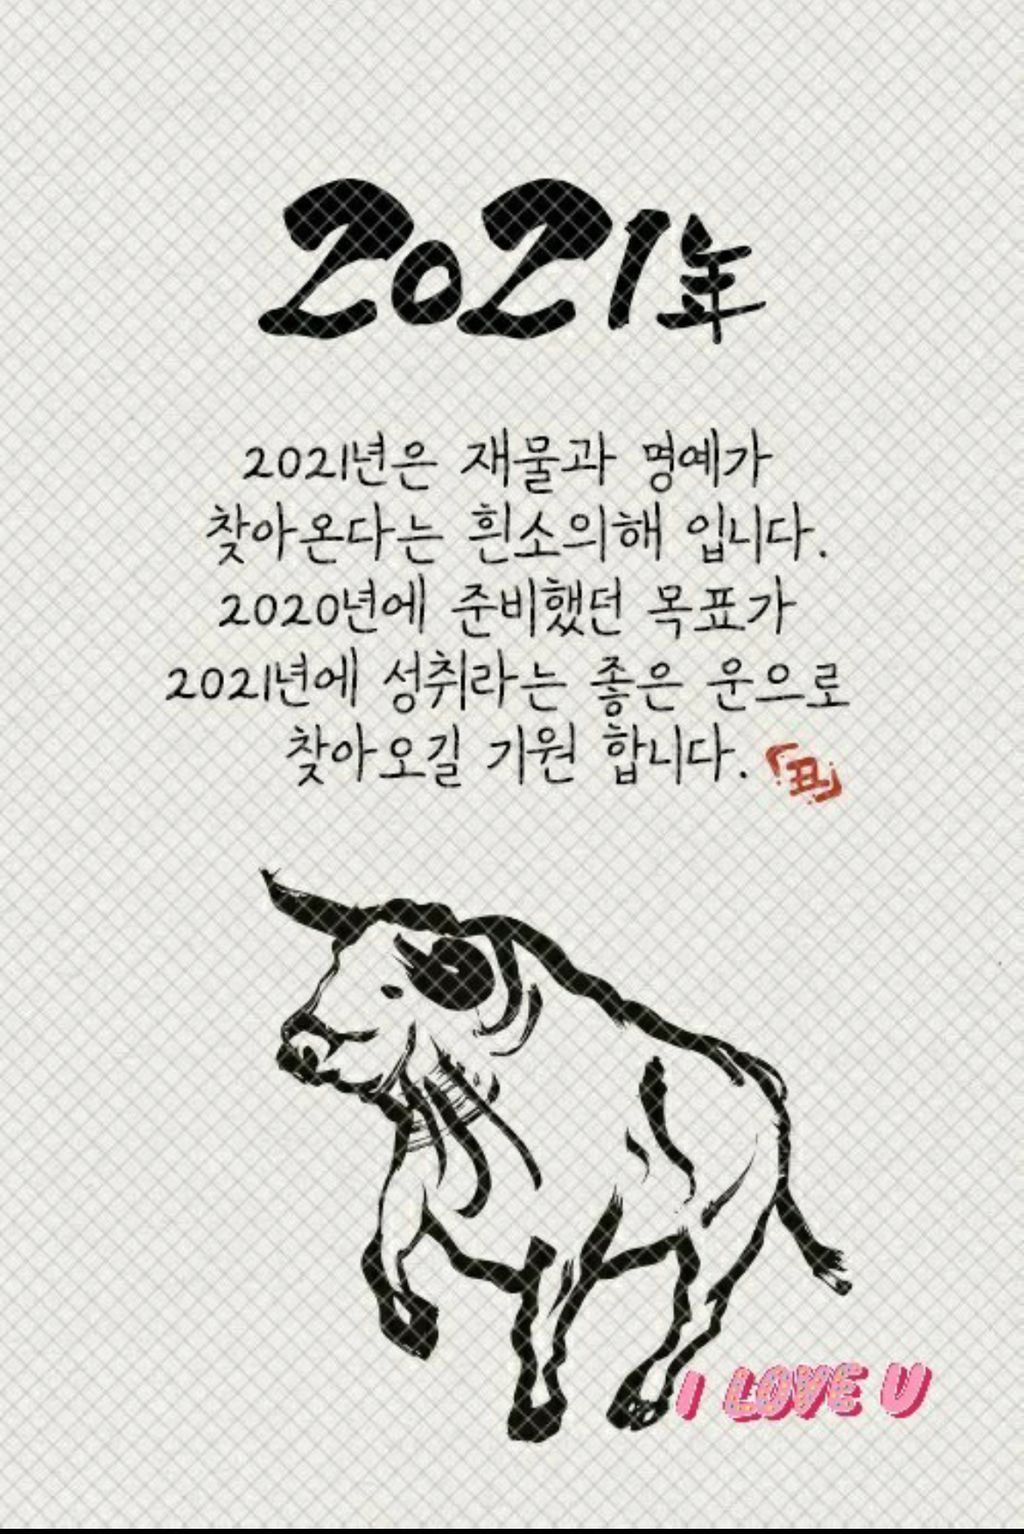 2021年
2021년은 재물과 명예가
찾아온다는 흰소의해 입니다.
2020년에 준비했던 목표가
2021년에 성취라는 좋은 운으로
찾아오길 기원 합니다.
丑
I LOVE U